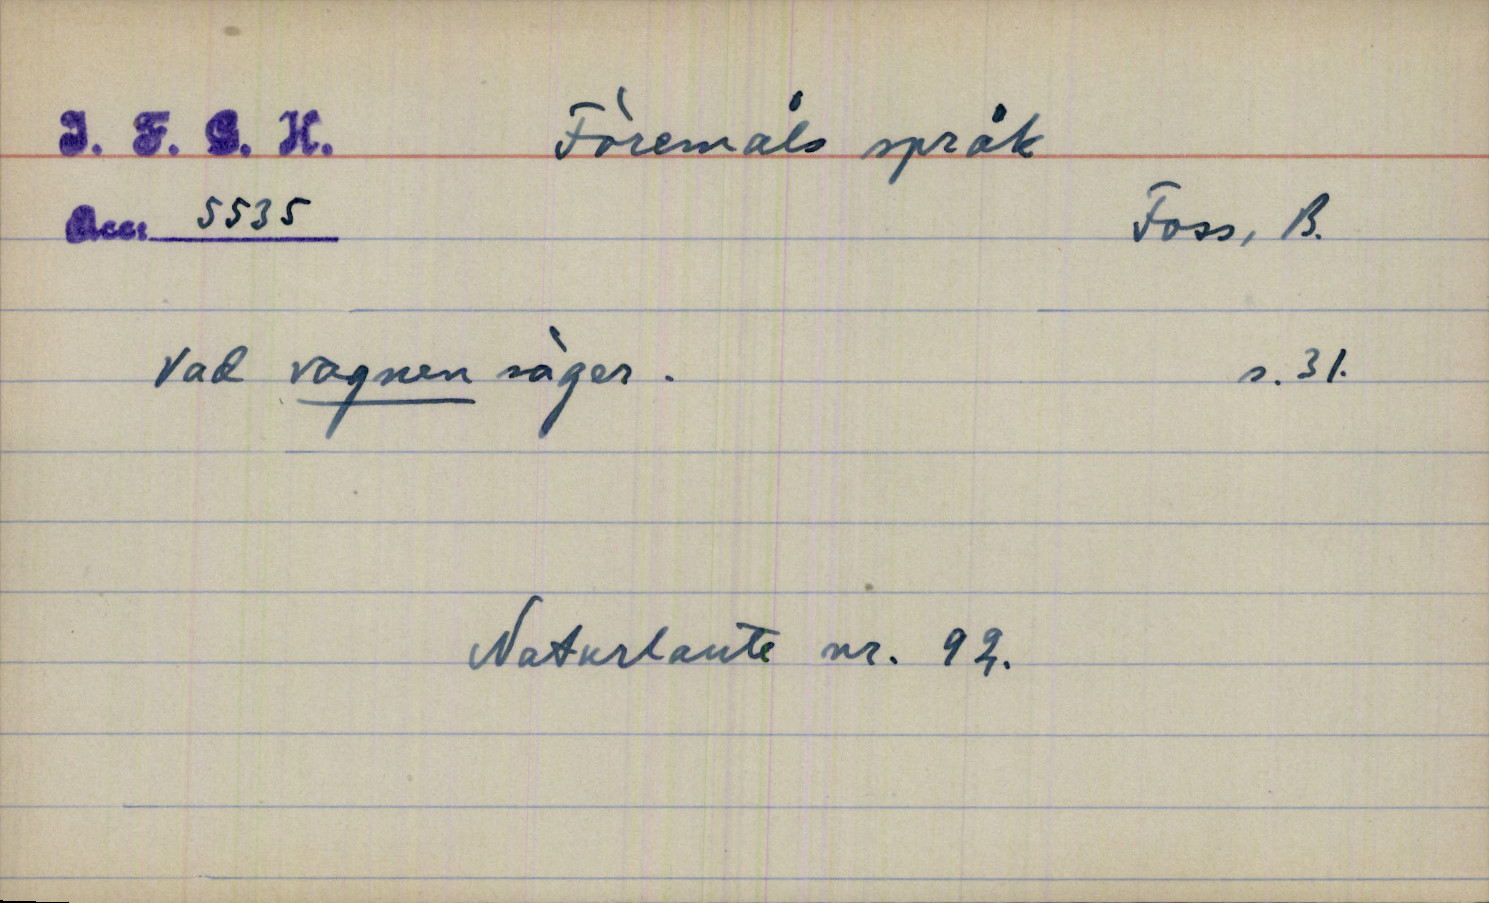 I. F. G. H. Föremåls språk
Acc: 5535 Foss, B.
Vad vagnen säger. s. 31.
Naturlaute nr. 92.